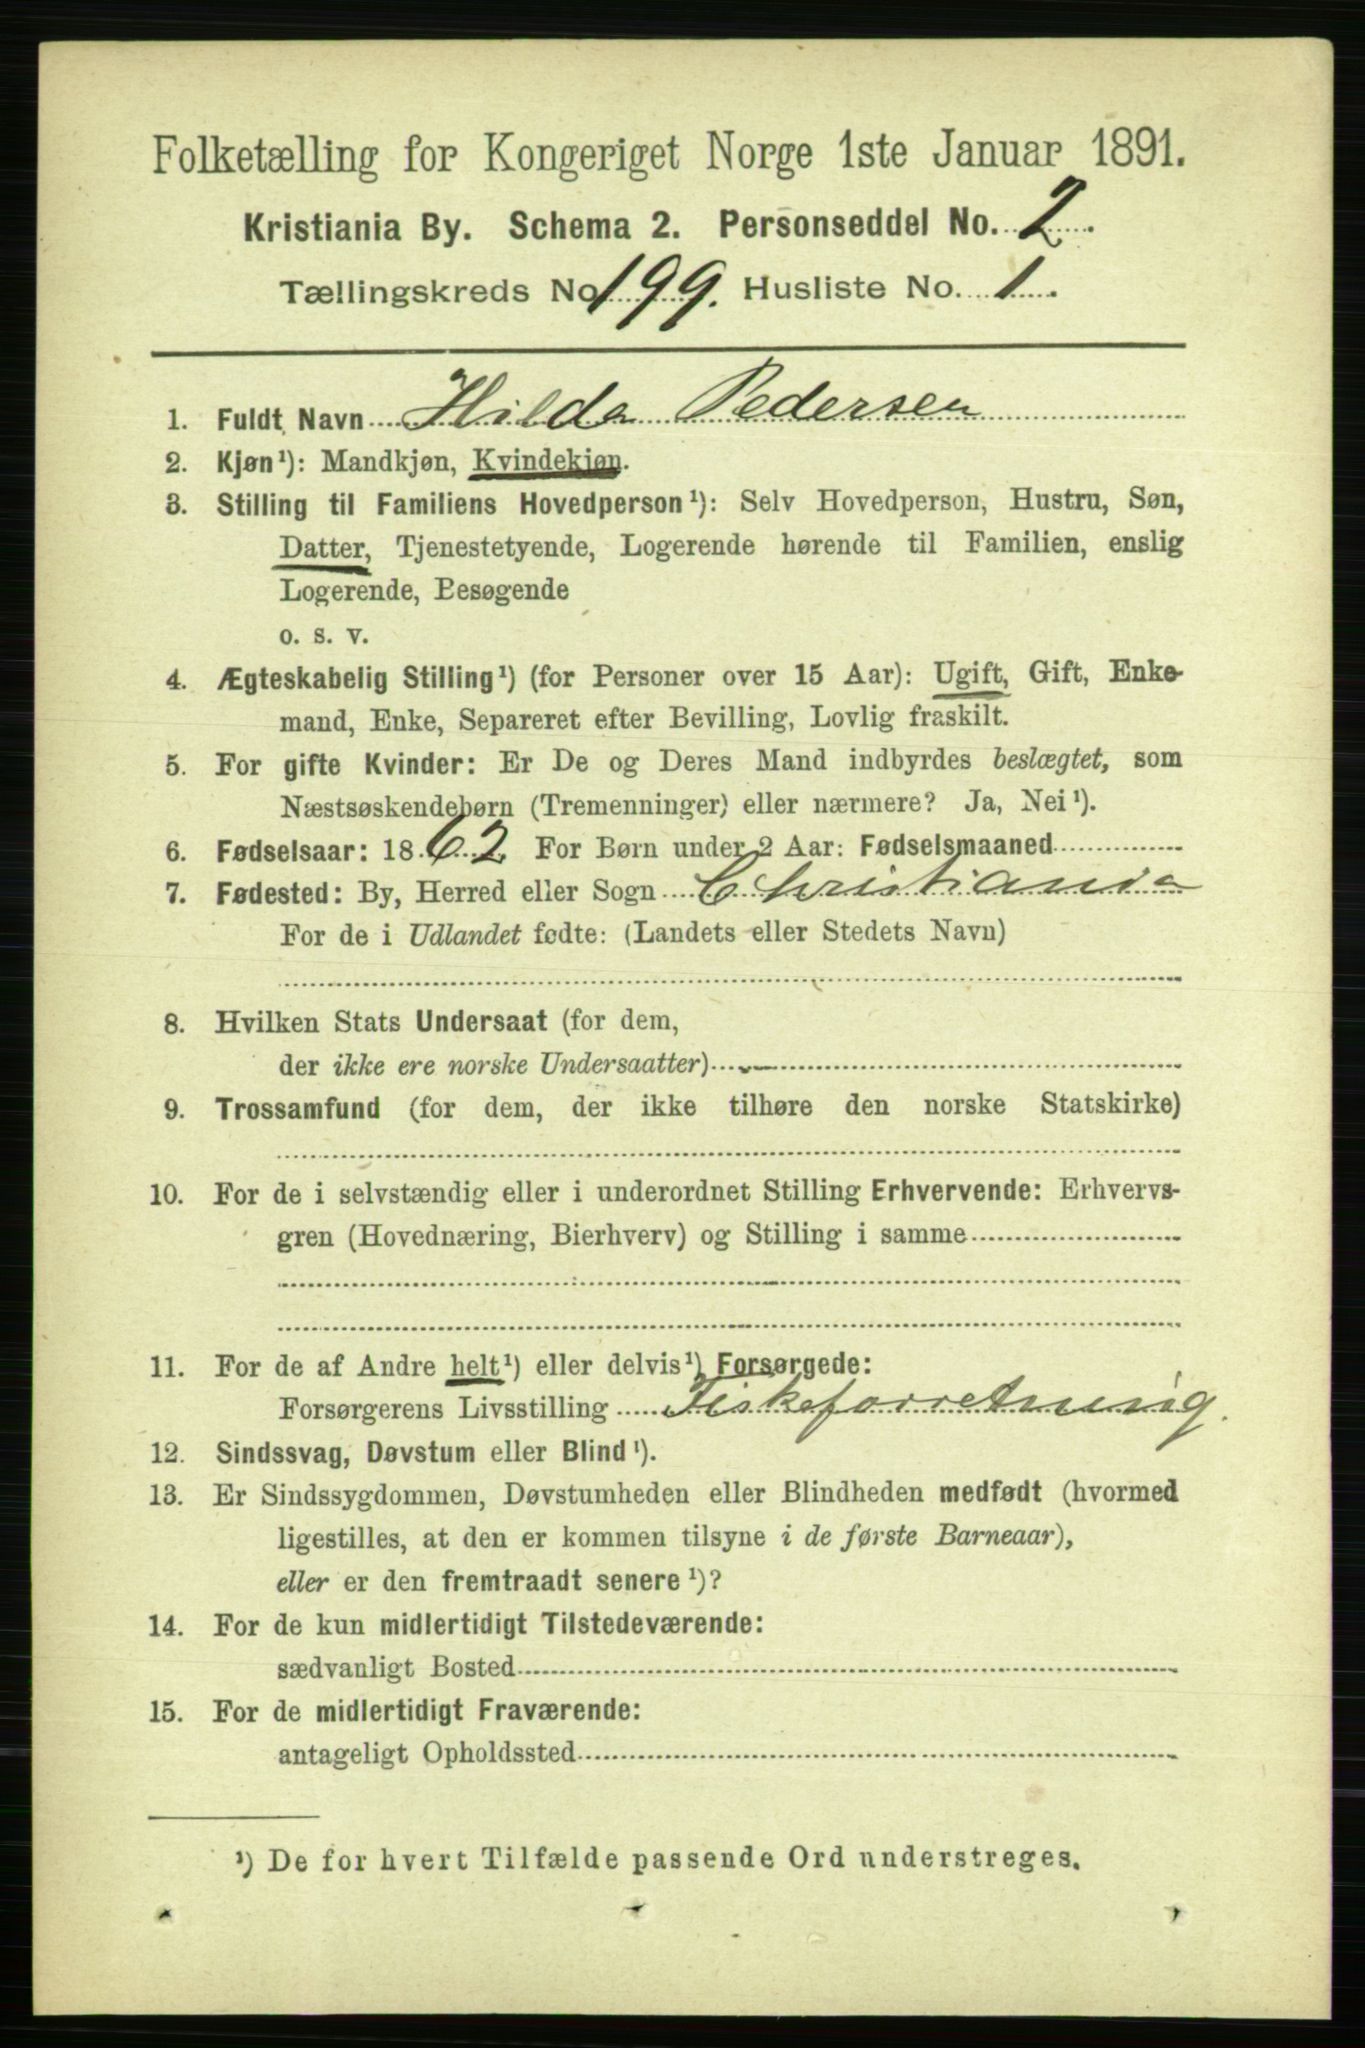 Folketælling for Kongeriget Norge 1ste Januar 1891.
Kristiania By. Schema 2. Personseddel No. 2.
Tællingskreds No 199. Husliste No. 1.
1. Fuldt Navn Hilda Pedersen
2. Kjøn¹): Mandkjøn, Kvindekjøn.
3. Stilling til Familiens Hovedperson¹): Selv Hovedperson, Hustru, Søn,
Datter, Tjenestetyende, Logerende hørende til Familien, enslig
Logerende, Besøgende
o. s. v.
4. Ægteskabelig Stilling¹) (for Personer over 15 Aar): Ugift, Gift, Enke-
mand, Enke, Separeret efter Bevilling, Lovlig fraskilt.
5. For gifte Kvinder: Er De og Deres Mand indbyrdes beslægtet, som
Næstsøskendebørn (Tremenninger) eller nærmere? Ja, Nei¹).
6. Fødselsaar: 1862. For Børn under 2 Aar: Fødselsmaaned
7. Fødested: By, Herred eller Sogn Christiania
For de i Udlandet fødte: (Landets eller Stedets Navn)
8. Hvilken Stats Undersaat (for dem,
der ikke ere norske Undersaatter)
9. Trossamfund (for dem, der ikke tilhøre den norske Statskirke)
10. For de i selvstændig eller i underordnet Stilling Erhvervende: Erhvervs-
gren (Hovednæring, Bierhverv) og Stilling i samme
11. For de af Andre helt¹) eller delvis¹) Forsørgede:
Forsørgerens Livsstilling Fiskeforretning.
12. Sindssvag, Døvstum eller Blind¹).
13. Er Sindssygdommen, Døvstumheden eller Blindheden medfødt (hvormed
ligestilles, at den er kommen tilsyne i de første Barneaar),
eller er den fremtraadt senere¹)?
14. For de kun midlertidigt Tilstedeværende:
sædvanligt Bosted
15. For de midlertidigt Fraværende:
antageligt Opholdssted
¹) De for hvert Tilfælde passende Ord understreges.